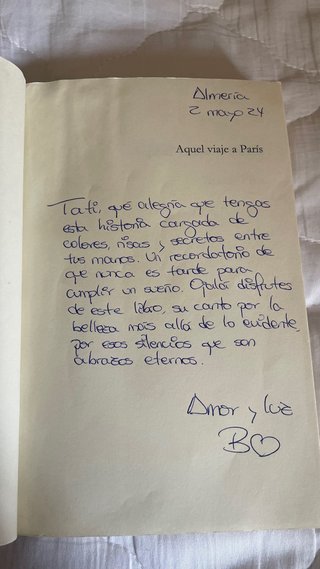 Almería
2 mayo 24
Aquel viaje a París
Tati, qué alegría que tengas
esta historia cargada de
colores, risas y secretos entre
tus manos. Un recordatorio de
que nunca es tarde para
cumplir un sueño. Ojalá disfrutes
de este libro, su canto por la
belleza más allá de lo evidente,
por esos silencios que son
abrazos eternos.
Amor y luz
B♡